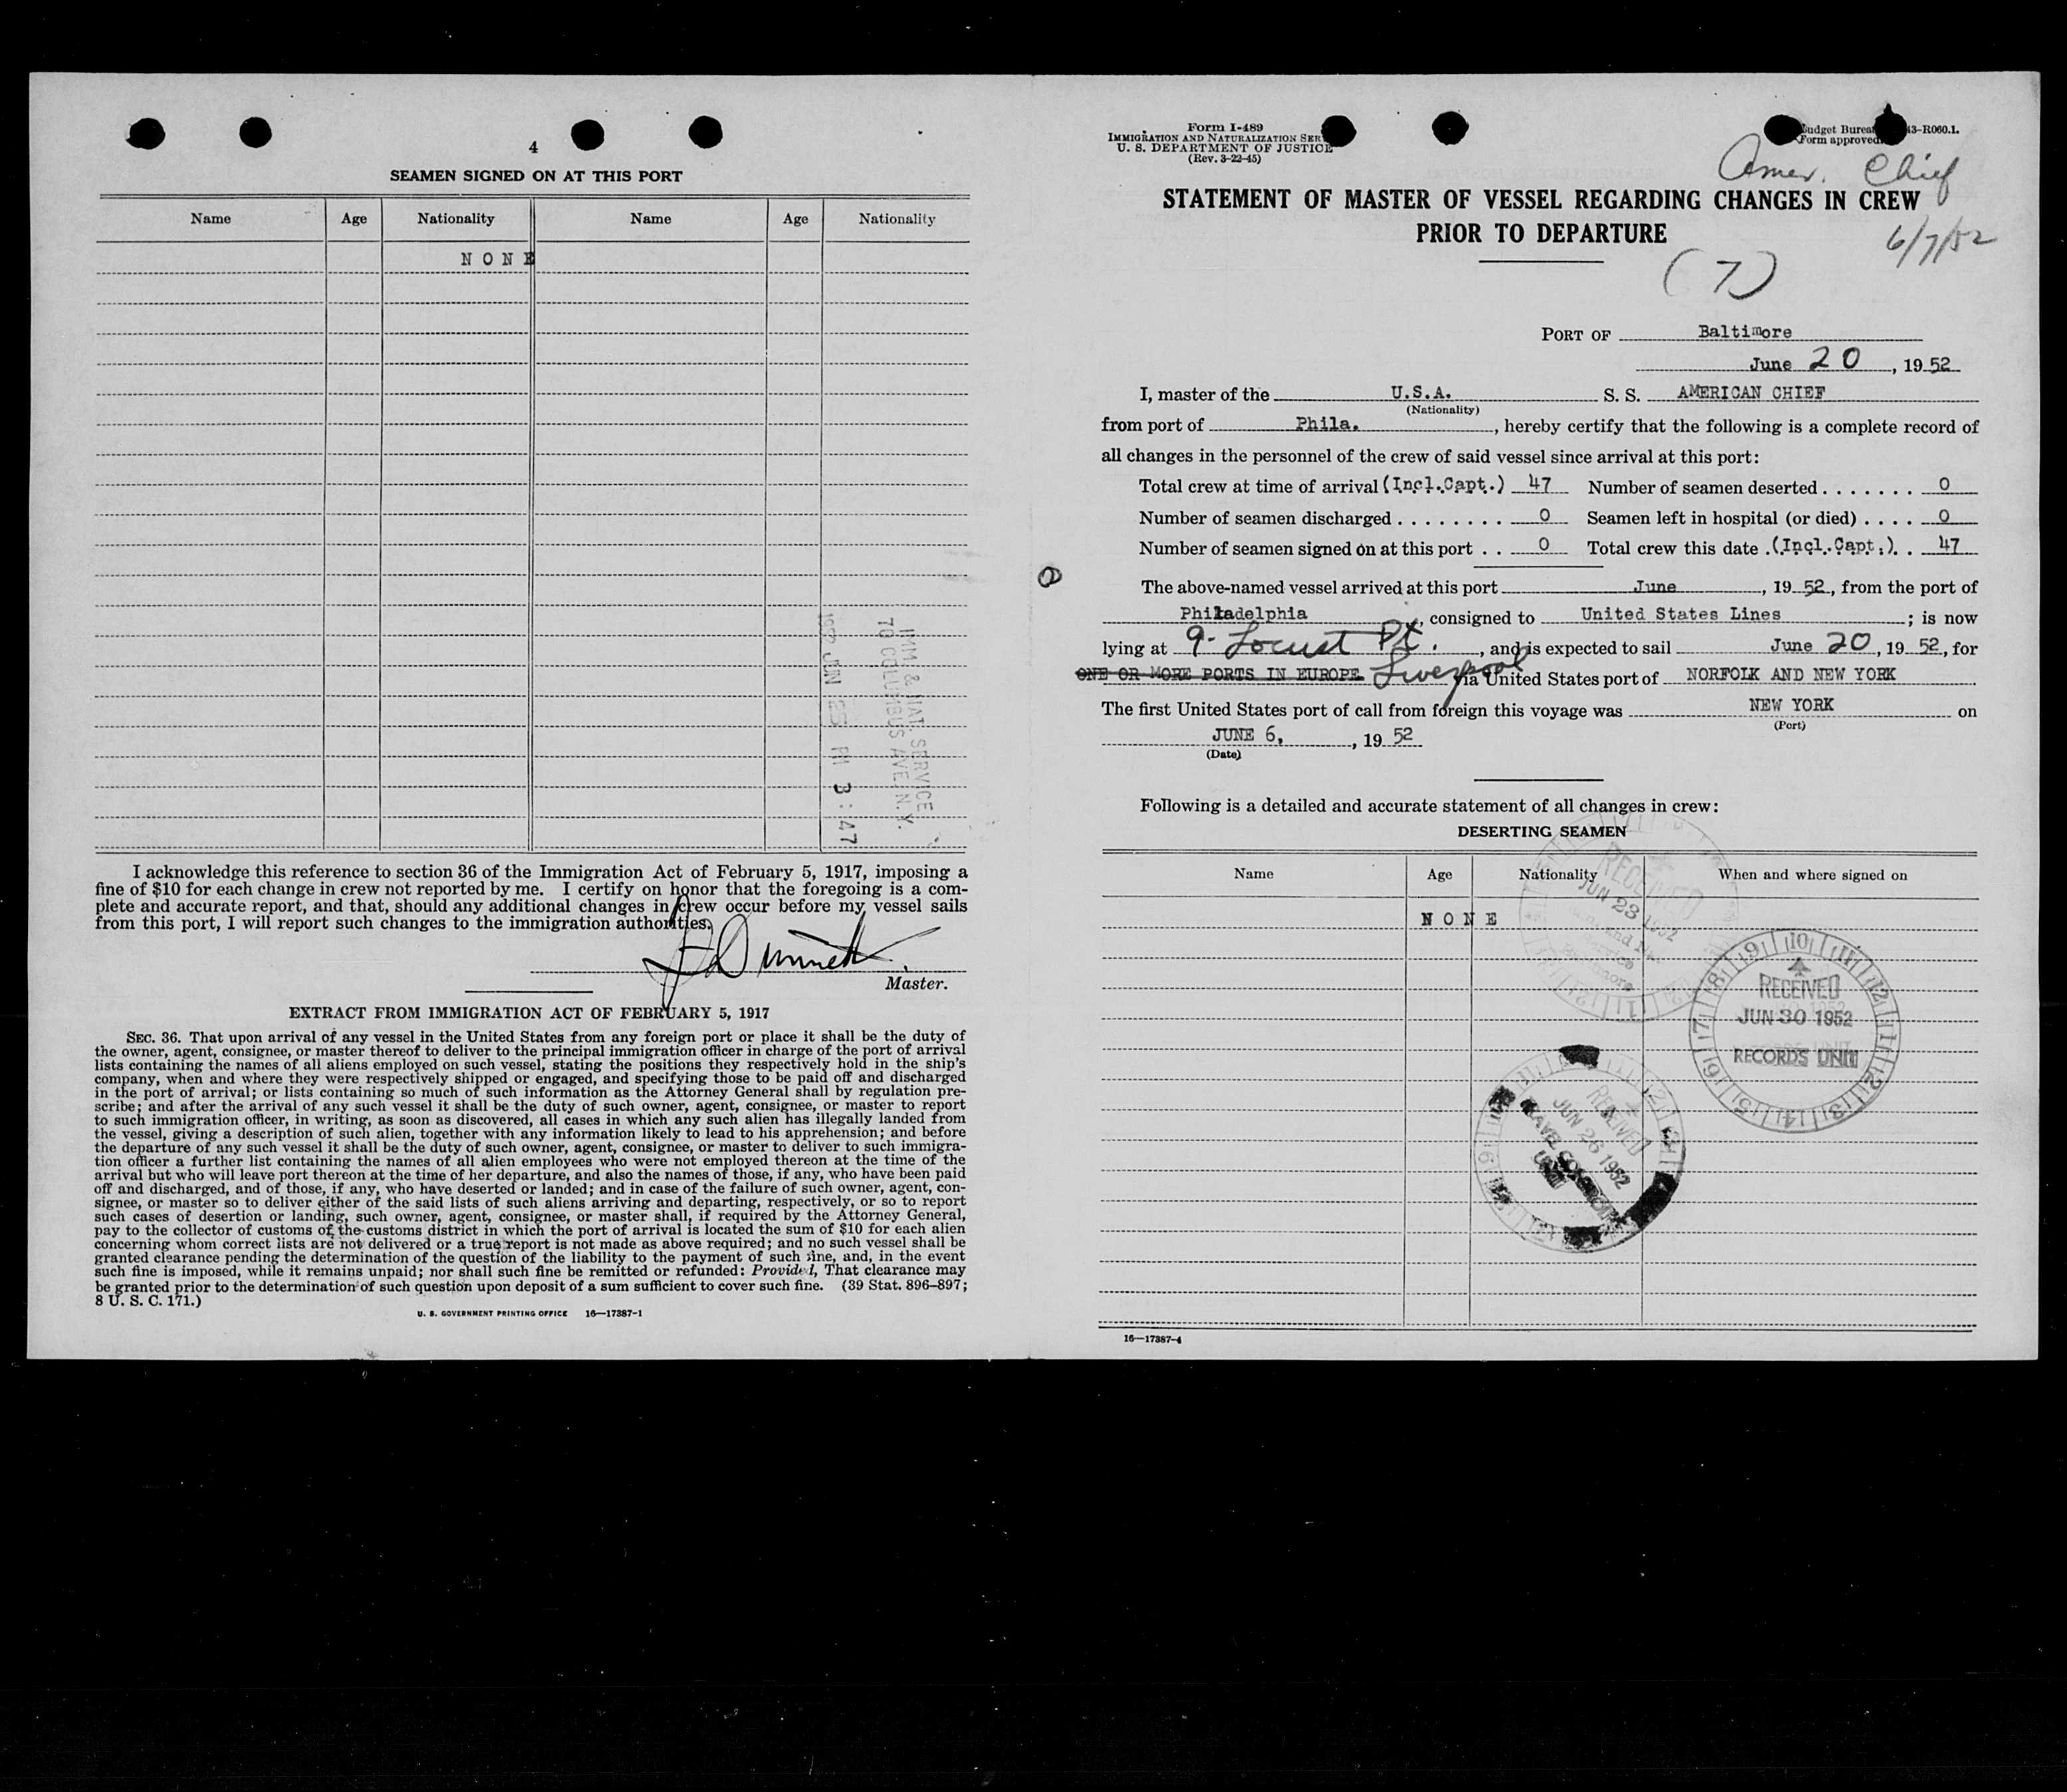 4
SEAMEN SIGNED ON AT THIS PORT
Name Age Nationality Name Age Nationality
NONE
IMM. & NAT. SERVICE
70 COLUMBUS AVE. N.Y.
1952 JUN 25 PM 3:47
I acknowledge this reference to section 36 of the Immigration Act of February 5, 1917, imposing a
fine of $10 for each change in crew not reported by me. I certify on honor that the foregoing is a com-
plete and accurate report, and that, should any additional changes in crew occur before my vessel sails
from this port, I will report such changes to the immigration authorities.
Master.
EXTRACT FROM IMMIGRATION ACT OF FEBRUARY 5, 1917
SEC. 36. That upon arrival of any vessel in the United States from any foreign port or place it shall be the duty of
the owner, agent, consignee, or master thereof to deliver to the principal immigration officer in charge of the port of arrival
lists containing the names of all aliens employed on such vessel, stating the positions they respectively hold in the ship's
company, when and where they were respectively shipped or engaged, and specifying those to be paid off and discharged
in the port of arrival; or lists containing so much of such information as the Attorney General shall by regulation pre-
scribe; and after the arrival of any such vessel it shall be the duty of such owner, agent, consignee, or master to report
to such immigration officer, in writing, as soon as discovered, all cases in which any such alien has illegally landed from
the vessel, giving a description of such alien, together with any information likely to lead to his apprehension; and before
the departure of any such vessel it shall be the duty of such owner, agent, consignee, or master to deliver to such immigra-
tion officer a further list containing the names of all alien employees who were not employed thereon at the time of the
arrival but who will leave port thereon at the time of her departure, and also the names of those, if any, who have been paid
off and discharged, and of those, if any, who have deserted or landed; and in case of the failure of such owner, agent, con-
signee, or master so to deliver either of the said lists of such aliens arriving and departing, respectively, or so to report
such cases of desertion or landing, such owner, agent, consignee, or master shall, if required by the Attorney General,
pay to the collector of customs of the customs district in which the port of arrival is located the sum of $10 for each alien
concerning whom correct lists are not delivered or a true report is not made as above required; and no such vessel shall be
granted clearance pending the determination of the question of the liability to the payment of such fine, and, in the event
such fine is imposed, while it remains unpaid; nor shall such fine be remitted or refunded: Provided, That clearance may
be granted prior to the determination of such question upon deposit of a sum sufficient to cover such fine. (39 Stat. 896–897;
8 U. S. C. 171.)
U. S. GOVERNMENT PRINTING OFFICE 16—17387-1
Form I-489
IMMIGRATION AND NATURALIZATION SER
U. S. DEPARTMENT OF JUSTICE
(Rev. 3-22-45)
Budget Bureau 43-R060.1.
Form approved
Amer. Chief
STATEMENT OF MASTER OF VESSEL REGARDING CHANGES IN CREW
PRIOR TO DEPARTURE
6/7/52
(7)
PORT OF Baltimore
June 20, 1952
I, master of the U.S.A. S. S. AMERICAN CHIEF
(Nationality)
from port of Phila., hereby certify that the following is a complete record of
all changes in the personnel of the crew of said vessel since arrival at this port:
Total crew at time of arrival (Incl.Capt.) 47 Number of seamen deserted . . . . . . . 0
Number of seamen discharged . . . . . . . . 0 Seamen left in hospital (or died) . . . . 0
Number of seamen signed on at this port . . 0 Total crew this date (Incl.Capt.) . . 47
The above-named vessel arrived at this port June, 1952, from the port of
Philadelphia, consigned to United States Lines; is now
lying at 9 - Locust Pt., and is expected to sail June 20, 1952, for
ONE OR MORE PORTS IN EUROPE Liverpool via United States port of NORFOLK AND NEW YORK
The first United States port of call from foreign this voyage was NEW YORK on
(Port)
JUNE 6, 1952
(Date)
Following is a detailed and accurate statement of all changes in crew:
DESERTING SEAMEN
Name Age Nationality When and where signed on
NONE
RECEIVED
JUN 23 1952
RECEIVED
JUN 30 1952
RECORDS UNIT
RECEIVED
JUN 26 1952
16—17387-4